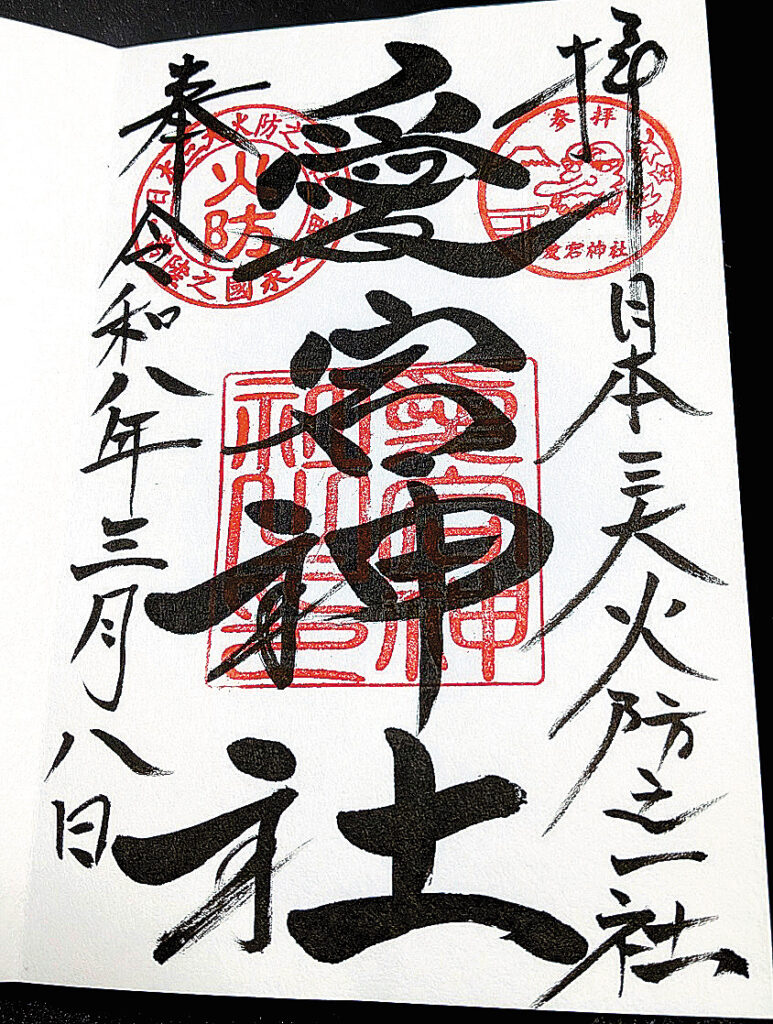 拝
日本三大火防之一社
愛宕神社
奉
令和八年三月八日
参拝
愛宕神社
火防
愛宕神
社之印